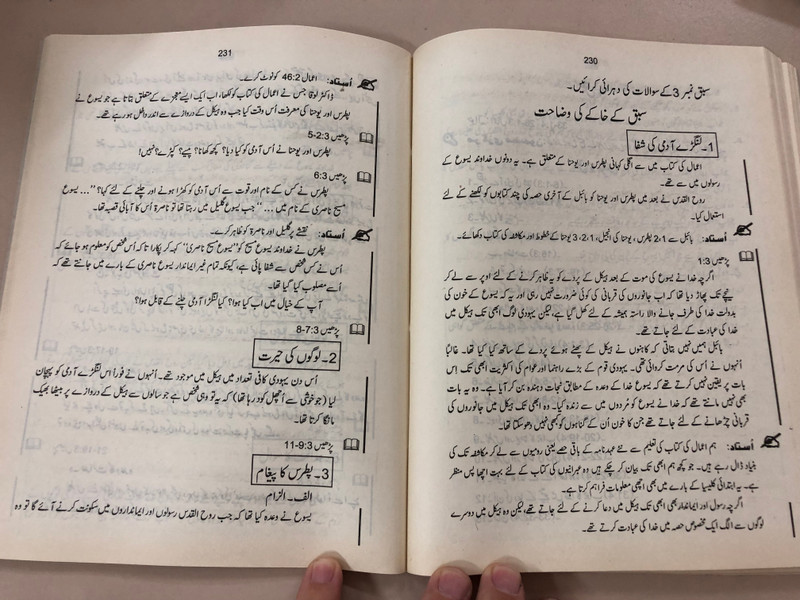 230
سبق نمبر 3 کے سوالات کی دہرائی کرائیں۔
سبق کے خاکے کی وضاحت
1۔ لنگڑے آدمی کی شفا
اعمال کی کتاب میں سے اگلی کہانی پطرس اور یوحنا کے متعلق ہے۔ یہ دونوں خداوند یسوع کے
رسولوں میں سے تھے۔
روح القدس نے بعد میں پطرس اور یوحنا کو بائبل کے آخری حصہ کی چند کتابوں کو لکھنے کے لئے
استعمال کیا۔
اُستاد: بائبل سے 2،1 پطرس، یوحنا کی انجیل، 3،2،1 یوحنا کے خطوط اور مکاشفہ کی کتاب دکھائے۔
پڑھیں 1:3
اگرچہ خدا نے یسوع کی موت کے بعد ہیکل کے پردے کو یہ ظاہر کرنے کے لئے اوپر سے لے کر
نیچے تک پھاڑ دیا تھا کہ اب جانوروں کی قربانی کی کوئی ضرورت نہیں رہی اور یہ کہ یسوع کے خون کی
بدولت خدا کی طرف جانے والا راستہ ہمیشہ کے لئے کھل گیا ہے، لیکن یہودی لوگ ابھی تک ہیکل میں
خدا کی عبادت کے لئے جاتے تھے۔
بائبل ہمیں نہیں بتاتی کہ کاہنوں نے ہیکل کے پھٹے ہوئے پردے کے ساتھ کیا کیا تھا۔ غالباً
اُنہوں نے اُس کی مرمت کروائی تھی۔ یہودی قوم کے بڑے راہنما اور عوام کی اکثریت ابھی تک اِس
بات پر یقین نہیں کرتے تھے کہ یسوع خدا کے وعدہ کے مطابق نجات دہندہ بن کر آیا ہے۔ وہ یہ بات
بھی نہیں مانتے تھے کہ خدا نے یسوع کو مُردوں میں سے زندہ کیا۔ وہ ابھی تک ہیکل میں جانوروں کی
قربانی چڑھانے کے لئے جاتے تھے جن کا خون اُن کے گناہوں کو کبھی نہیں دھو سکتا تھا۔
اُستاد: ہم اعمال کی کتاب کی تعلیم سے نئے عہدنامہ کے باقی حصے یعنی رومیوں سے لے کر مکاشفہ تک کی
بنیاد ڈال رہے ہیں۔ جو کچھ ہم ابھی تک بیان کر چکے ہیں وہ عبرانیوں کی کتاب کے لئے بہت اچھا پس منظر
ہے۔ یہ ابتدائی کلیسیا کے بارے میں بھی اچھی معلومات فراہم کرتا ہے۔
اگرچہ رسول اور ایماندار بھی ابھی تک ہیکل میں دعا کرنے کے لئے جاتے تھے، لیکن وہ ہیکل میں دوسرے
لوگوں سے الگ ایک مخصوص حصہ میں خدا کی عبادت کرتے تھے۔
231
اُستاد: اعمال 46:2 کو نوٹ کرے۔
ڈاکٹر لوقا جس نے اعمال کی کتاب کو لکھا، اب ایک ایسے معجزے کے متعلق بتاتا ہے جو یسوع نے
پطرس اور یوحنا کی معرفت اُس وقت کیا جب وہ ہیکل کے دروازے سے اندر داخل ہو رہے تھے۔
پڑھیں 5-2:3
پطرس اور یوحنا نے اُس آدمی کو کیا دیا؟ کچھ کھانا؟ پیسے؟ کپڑے؟ نہیں!
پڑھیں 6:3
پطرس نے کس کے نام اور قوت سے اُس آدمی کو کھڑا ہونے اور چلنے کے لئے کہا؟ ”...یسوع
مسیح ناصری کے نام میں ...“ جب یسوع گلیل میں رہتا تھا تو ناصرۃ اُس کا آبائی قصبہ تھا۔
اُستاد: نقشے پر گلیل اور ناصرۃ کو ظاہر کرے۔
پطرس نے خداوند یسوع مسیح کو ”یسوع مسیح ناصری“ کہہ کر پکارا تا کہ اُس شخص کو معلوم ہو جائے کہ
اُس نے کس شخص سے شفا پائی ہے، کیونکہ تمام غیر ایماندار یسوع ناصری کے بارے میں جانتے تھے کہ
اُسے مصلوب کیا گیا تھا۔
آپ کے خیال میں اب کیا ہوا؟ کیا لنگڑا آدمی چلنے کے قابل ہوا؟
پڑھیں 8-7:3
2۔ لوگوں کی حیرت
اُس دن یہودی کافی تعداد میں ہیکل میں موجود تھے۔ اُنہوں نے فوراً اُس لنگڑے آدمی کو پہچان
لیا (جو خوشی سے اُچھل کود رہا تھا) کہ یہ تو وہی شخص ہے جو سالوں سے ہیکل کے دروازے پر بیٹھا بھیک
مانگا کرتا تھا۔
پڑھیں 11-9:3
3۔ پطرس کا پیغام
الف۔ الزام
یسوع نے وعدہ کیا تھا کہ جب روح القدس رسولوں اور ایمانداروں میں سکونت کرنے آئے گا تو وہ